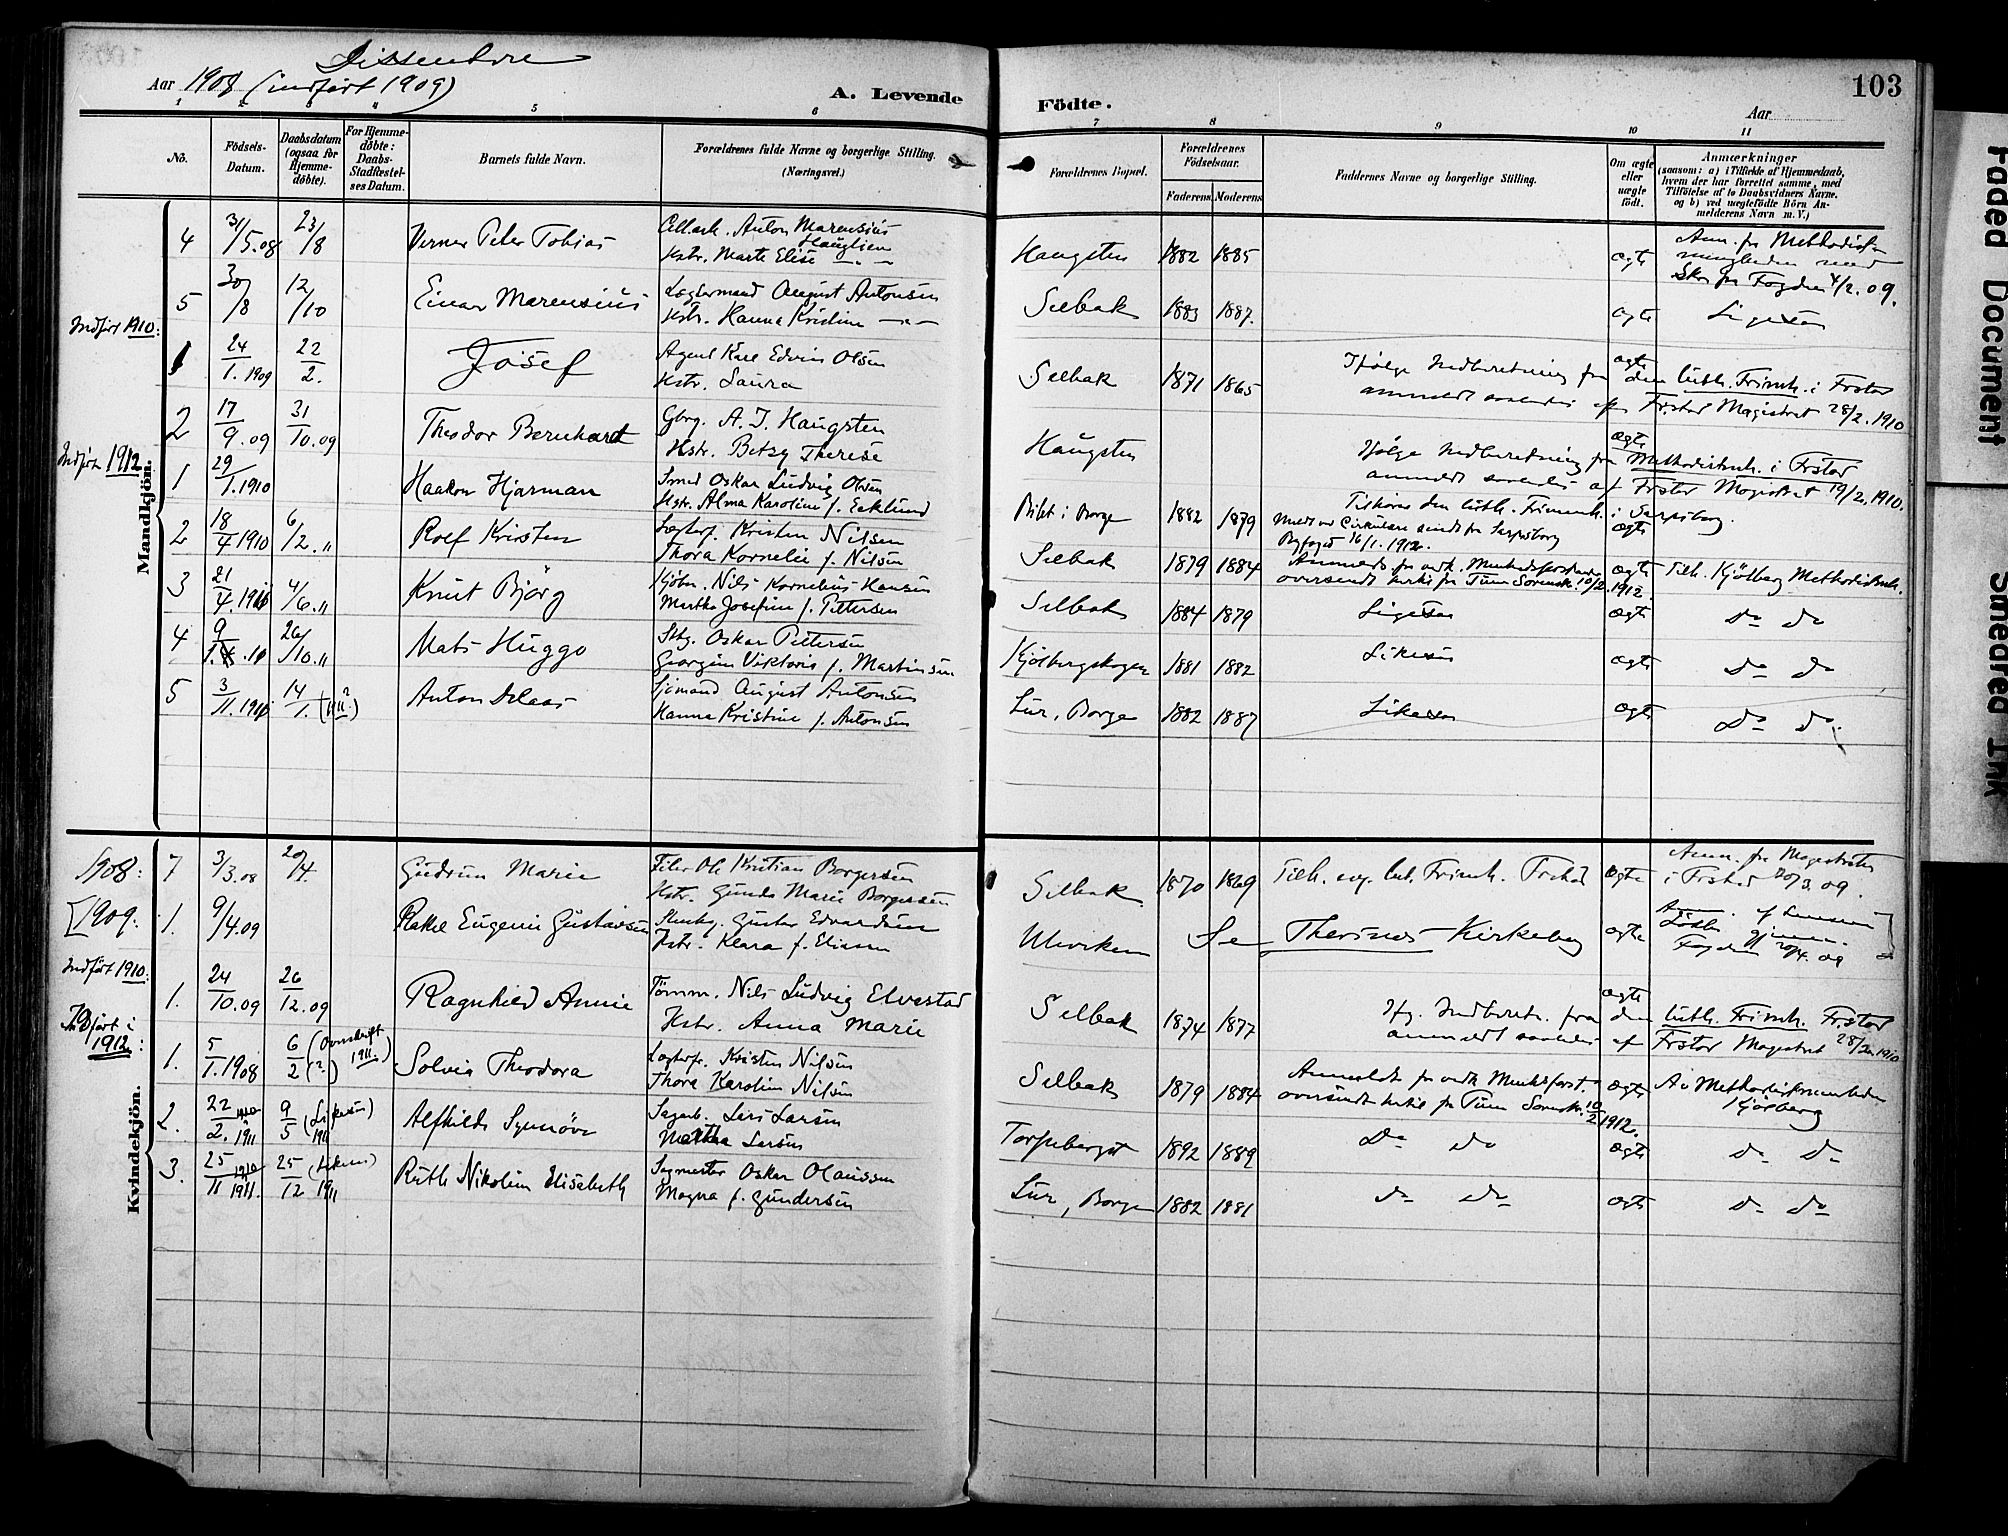 Dissentere
Aar 1908 (indført 1909)
A. Levende Födte.
103
Aar
1 2 3 4 5 6 7 8 9 10 11
No.
Födsels-Datum.
Daabsdatum (ogsaa for Hjemmedöbte).
For Hjemmedöbte: Daabs-Stadfæstelses Datum.
Barnets fulde Navn.
Forældrenes fulde Navne og borgerlige Stilling. (Næringsvei.)
Forældrenes Bopæl.
Forældrenes Födselsaar.
Faderens. Moderens.
Faddernes Navne og borgerlige Stilling.
Om ægte eller uægte födt.
Anmærkninger
(saasom: a) i Tilfælde af Hjemmedaab,
hvem der har forrettet samme, med
Tilföielse af to Daabsvidners Navne.
og b) ved uægtefödte Börn An-
melderens Navn m. V.)
Mandkjön.
4 31/5.08 23/8 Verner Peter Tobias
Anton Marensius Hauglien
Hstr. Marte Elise —"—
Haugsten 1882 1885 ægte
Anm. fra Methodist-
menigheden med
Skr. fra Fogden 4/2.09.
5 30/8 12/10 Einar Marensius
August Antonsen
Hstr. Hanna Kristine —"—
Selbak 1883 1887. ægte Ligesaa
Indført 1910:
1 24/1.1909 22/2. Josef
Agent Karl Edvin Olsen
Hstr. Laura
Selbak 1871 1865 ægte
Ifølge Indberetning fra den luth. Frimh. i Frstad
anmeldt saaledes af Frstad Magistrat 28/2.1910
2 17/9.09 31/10.09 Theodor Bernhardt
Gbrg. A. J. Haugsten
Hstr. Betzy Therese
Haugsten ægte
Ifølge Indberetning fra Methodistmh. i Frstad
anmeldt saaledes af Frstad Magistrat 19/2.1910.
Indført 1912
1 29/1.1910 Haakon Hjarman
Smed Oskar Ludvig Olsen
Hstr. Alma Karoline f. Ecklund
i Borge 1882 1879 ægte
Tilhører den luth. Frimenh. i Sarpsborg.
Cirkulære sendt fra Sarpsborg
Byfoged 16/1.1912.
2 18/4 1910 6/2." Rolf Kristen
Kristen Nilsen
Thora Kornelie f. Nilsen
Selbak 1879 1884 ægte
Anmeldt fra vedk. Menhedsforstander
oversendt hertil fra Tune Sorensk. 10/2.1912.
Tilh. Kjölberg Methodistmh.
3 21/4.1910 4/6." Knut Bjørg
Nils Kornelius Hansen
Martha Josefine f. Pettersen
Selbak 1884 1879 Ligesaa ægte do do
4 9/ .10 26/10." Mats Huggo
Oskar Pettersen
Georgine Viktoria f. Martinsen
Kjölbergskogen 1881 1882 Likesaa ægte do do
5 3/11.1910 14/1. (1911?) Anton
Sjømand August Antonsen
Hanna Kristine f. Antonsen
Lur, Borge 1882 1887 Likesaa ægte do do.
Kvindekjön.
1908: 7 3/3.08 20/4 Gudrun Marie
Filer Ole Kristian Borgersen
Hstr. Gunda Marie Borgersen
Selbak 1870 1869
Tilh. ev. lut. Frimh. Frstad ægte
Anm. fra Magistraten
i Frstad 20/3.09.
[1909: 1. 9/4.09 Rakel Eugenie Gustavsen
Gustav Edvardsen
Hstr. Klara f. Eliassen
Ulviken Se Kirkebog ægte
Fogden 20/4.09
Indført 1910:
1. 24/10.09 26/12.09 Ragnhild Annie
Tømm. Nils Ludvig Elvestad
Hstr. Anna Marie
Selbak 1874 1877 ægte
Ifg. Indberetn. fra den luth. Frimh. Frstad
anmeldt saaledes af Frstad Magistrat 28/2.1910
Indført i 1912:
1. 5/1.1908 6/2 (?) 1911.) Solveig Theodora
Kristen Nilsen
Thora Karoline Nilsen
Selbak 1879 1884
Anmeldt fra vedk. Menhdsforst.
oversendt hertil fra Tune Sorensk. 10/2 1912.
ægte Av Methodistmenheden
Kjölberg
2. 22/2. 1911 9/5 1911 (Likesaa) Alfhilds Synnöve
Sagarb. Lars Larsen
Martha Larsen
Torpeberget 1892 1889 Do do ægte do do
3. 25/11 1911. 25/12 1911 (Likesaa) Ruth Nikoline Elisabeth
Sagmester Oskar Olaussen
Magna f. Gundersen
Lur, Borge 1882 1881 do do ægte do do
Faded Document
Smeared Ink